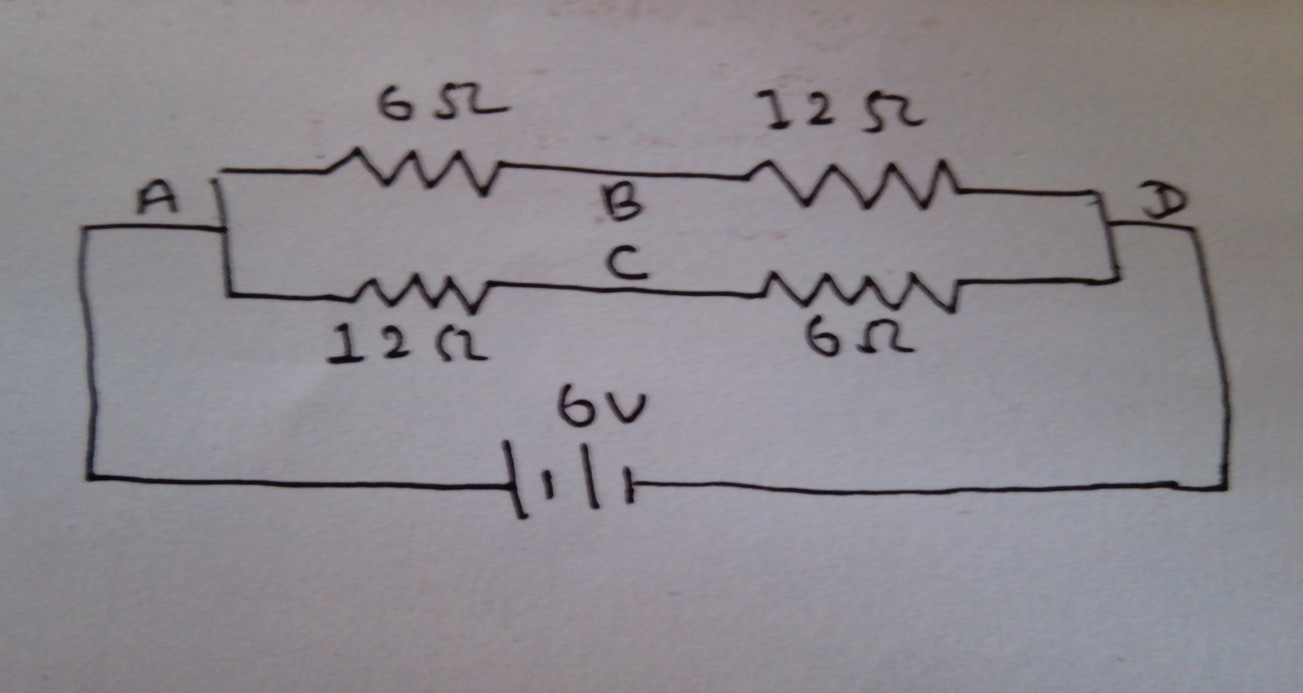 6 Ω 12 Ω
A B D
C
12 Ω 6 Ω
6V